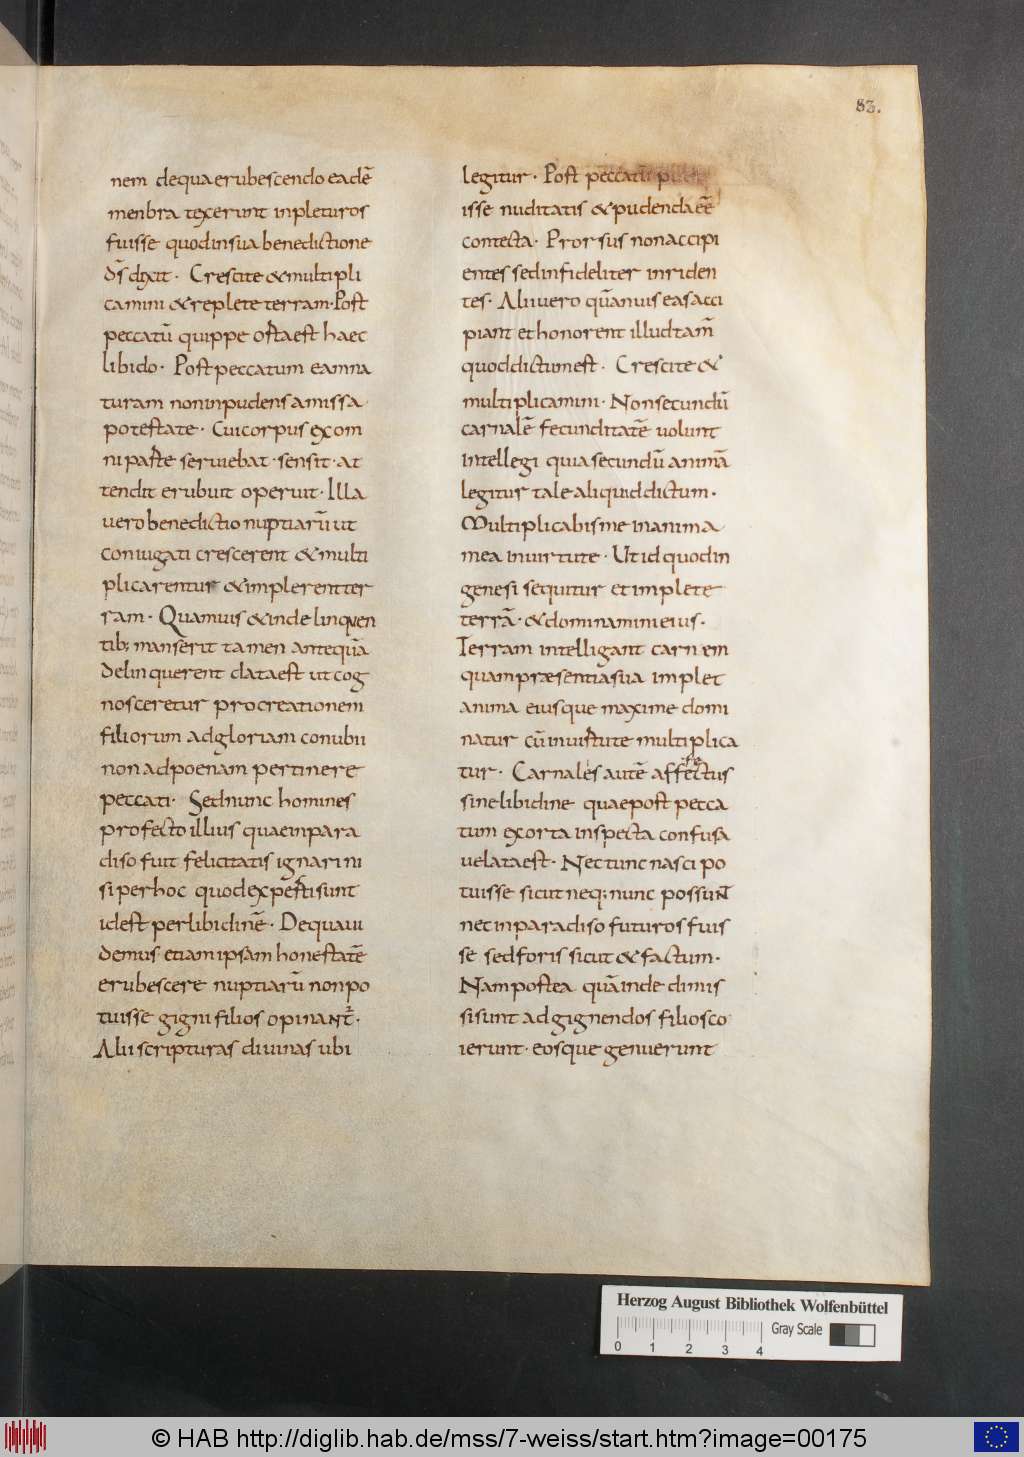 83.
nem dequaerubescendo eadē
menbra texerunt inpleturos
fuisse quodinsua benedictione
d̄s dixit · Crescite &multipli
camini &replete terram · Post
peccatū quippe ortaest haec
libido · Post peccatum eamna
turam noninpudens amissa
potestate · Cuicorpus exom
ni parte seruiebat · sensit · at
tendit erubuit operuit · Illa
uero benedictio nuptiarū ut
coniugati crescerent &multi
plicarentur &implerent ter
ram · Quamuis &inde linquen
tib; manserit tamen antequā
delinquerent dataest utcog
nosceretur procreationem
filiorum adgloriam conubii
non adpoenam pertinere
peccati · Sednunc homines
profecto illius quaeinpara
diso fuit felicitatis ignari ni
si perhoc quodexperti sunt
idest perlibidinē · Dequaui
demus etiam ipsam honestatē
erubescere nuptiarū nonpo
tuisse gigni filios opinant̄ ·
Alii scripturas diuinas ubi
legitur · Post peccatū
isse nuditatis &pudenda eē
contecta · Prorsus nonaccipi
entes sedinfideliter inriden
tes · Alii uero quāuis eas acci
piant et honorent illud tam̄
quoddictumest · Crescite &
multiplicamini · Nonsecundū
carnalē fecunditatē uolunt
intellegi quia secundū animā
legitur tale aliquid dictum ·
Multiplicabis me inanima
mea inuirtute · Ut id quodin
genesi sequitur et implete
terrā · &dominamini eius ·
Terram intelligant carnem
quam præsentiasua implet
anima eiusque maxime domi
natur cū inuirtute multiplica
tur · Carnales autē affectus
sinelibidine quaepost pecca
tum exorta inspecta confusa
uelataest · Nec tunc nasci po
tuisse sicut neq; nunc possunt
nec inparadiso futuros fuis
se sed foris sicut &factum ·
Nam postea quā inde dimis
si sunt ad gignendos filios co
ierunt · eosque genuerunt
Herzog August Bibliothek Wolfenbüttel
Gray Scale
0 1 2 3 4
© HAB http://diglib.hab.de/mss/7-weiss/start.htm?image=00175